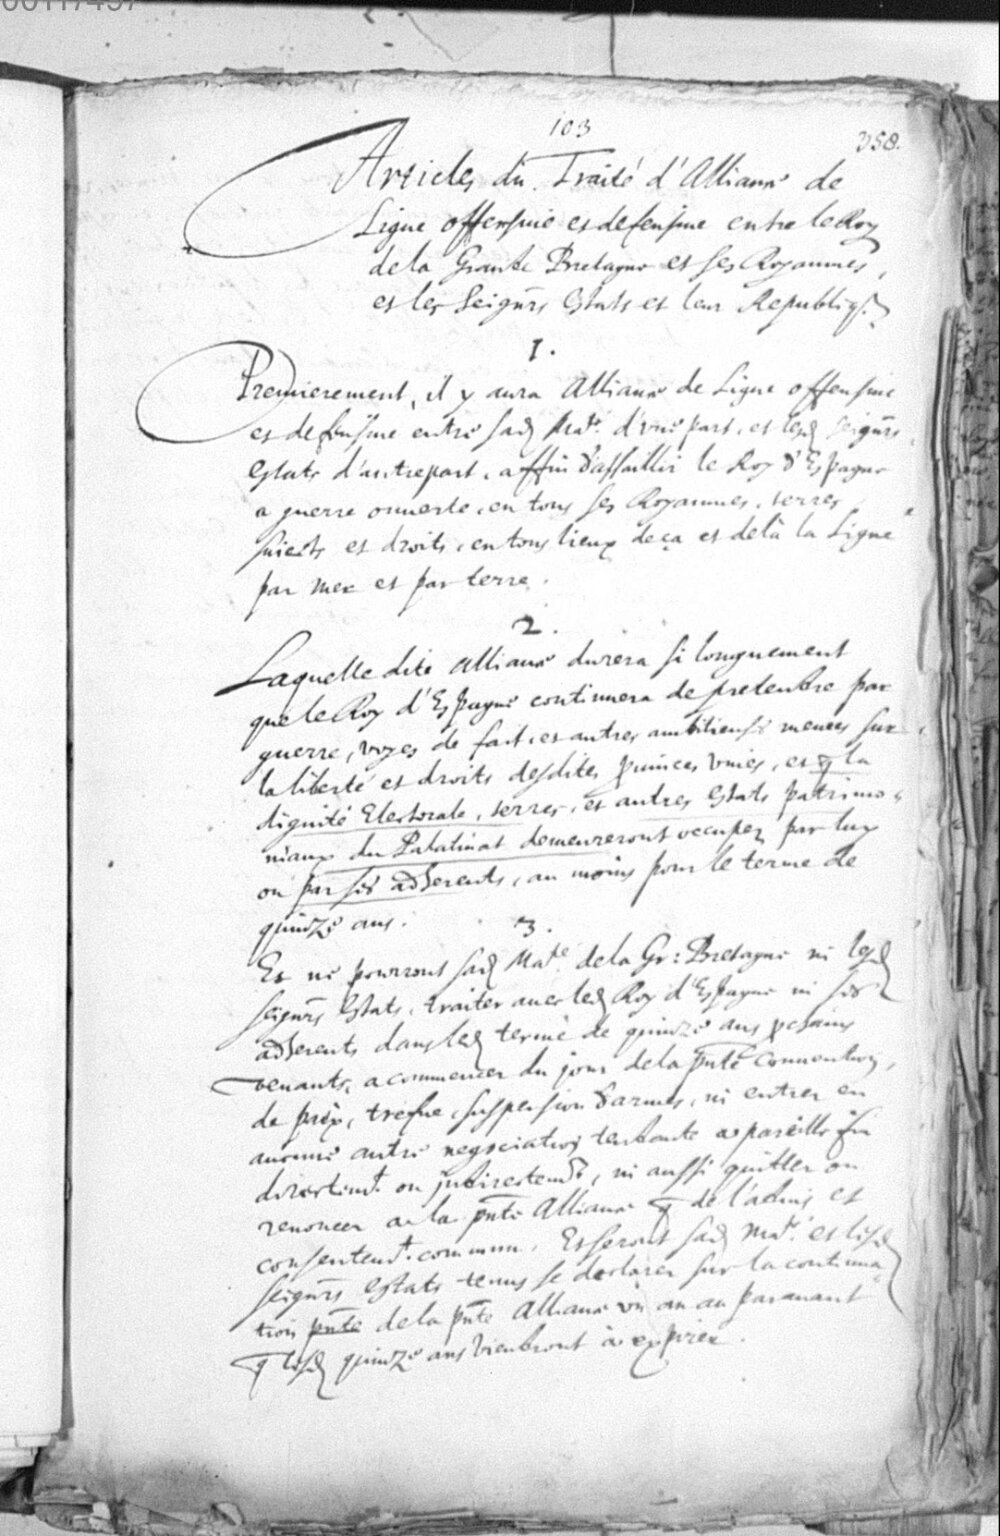 00117457
103
358.
Articles du Traité d'Alliance de
Ligue offensiue et defensiue entre le Roy
de la Grande Bretagne et ses Royaumes,
et les Seign̄rs Estats et leur Republiq̃.
1.
Premierement, il y aura Alliance de Ligue offensiue
et defensiue entre sad. Maté. d'vne part, et lesd. seign̄rs
Estats d'autrepart, affin d'assaillir le Roy d'Espagne
a guerre ouuerte, en tous ses Royaumes, terres
suiects et droits, en tous lieux deça et delà la Ligne
par mer et par terre.
2.
Laquelle dite alliance durera si longuement
que le Roy d'Espagne continuera de pretendre par
guerre, voyes de fait, et autres ambitieuses menees sur
la liberté et droits desdites prouinces vnies, et q̃ la
dignité Electorale, terres, et autres Estats patrimo-
niaux du Palatinat demeureront occupez par luy
ou par ses adherents, au moins pour le terme de
quinze ans.
3.
Et ne pourront sad. Maté. de la Gr: Bretagne ni lesd.
seign̄rs Estats, traiter auec led. Roy d'Espagne ni ses
adherents dans led. terme de quinze ans prochains
venants, a commencer du jour de la pn̄te conuention,
de paix, trefue, suspension d'armes, ni entrer en
aucune autre negociation tendante a pareille fin
directemt. ou indirectemt., ni aussi quitter ou
renoncer a la pn̄te Alliance q̃ de l'aduis et
consentemt. commun. Et seront sad. Maté. et lesd.
seign̄rs Estats tenus se declarer sur la continua-
tion pn̄te de la pn̄te Alliance vn an au parauant
q̃ lesd. quinze ans viendront à expirer.